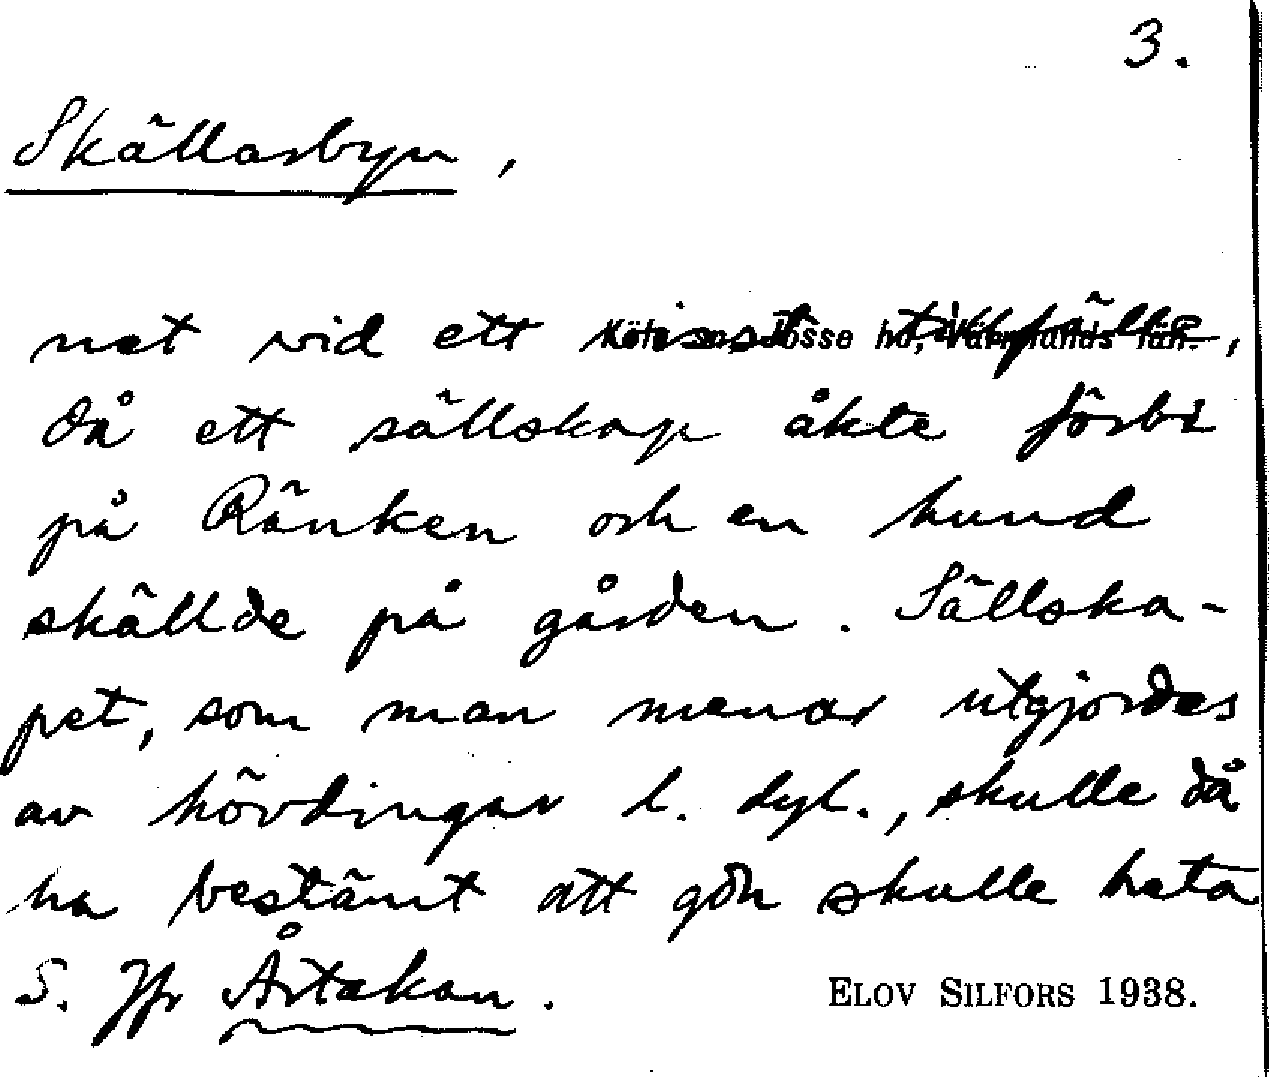 3.
Skällarbyn,
nat vid ett visst tillfälle,
Köla sn, Jösse hd, Värmlands län.
då ett sällskap åkte förbi
på Ränken och en hund
skällde på gården. Sällska-
pet, som man menar utgjordes
av hövdingar l. dyl., skulle då
ha bestämt att gdn skulle heta
S. Jfr Årtakan.
ELOV SILFORS 1938.